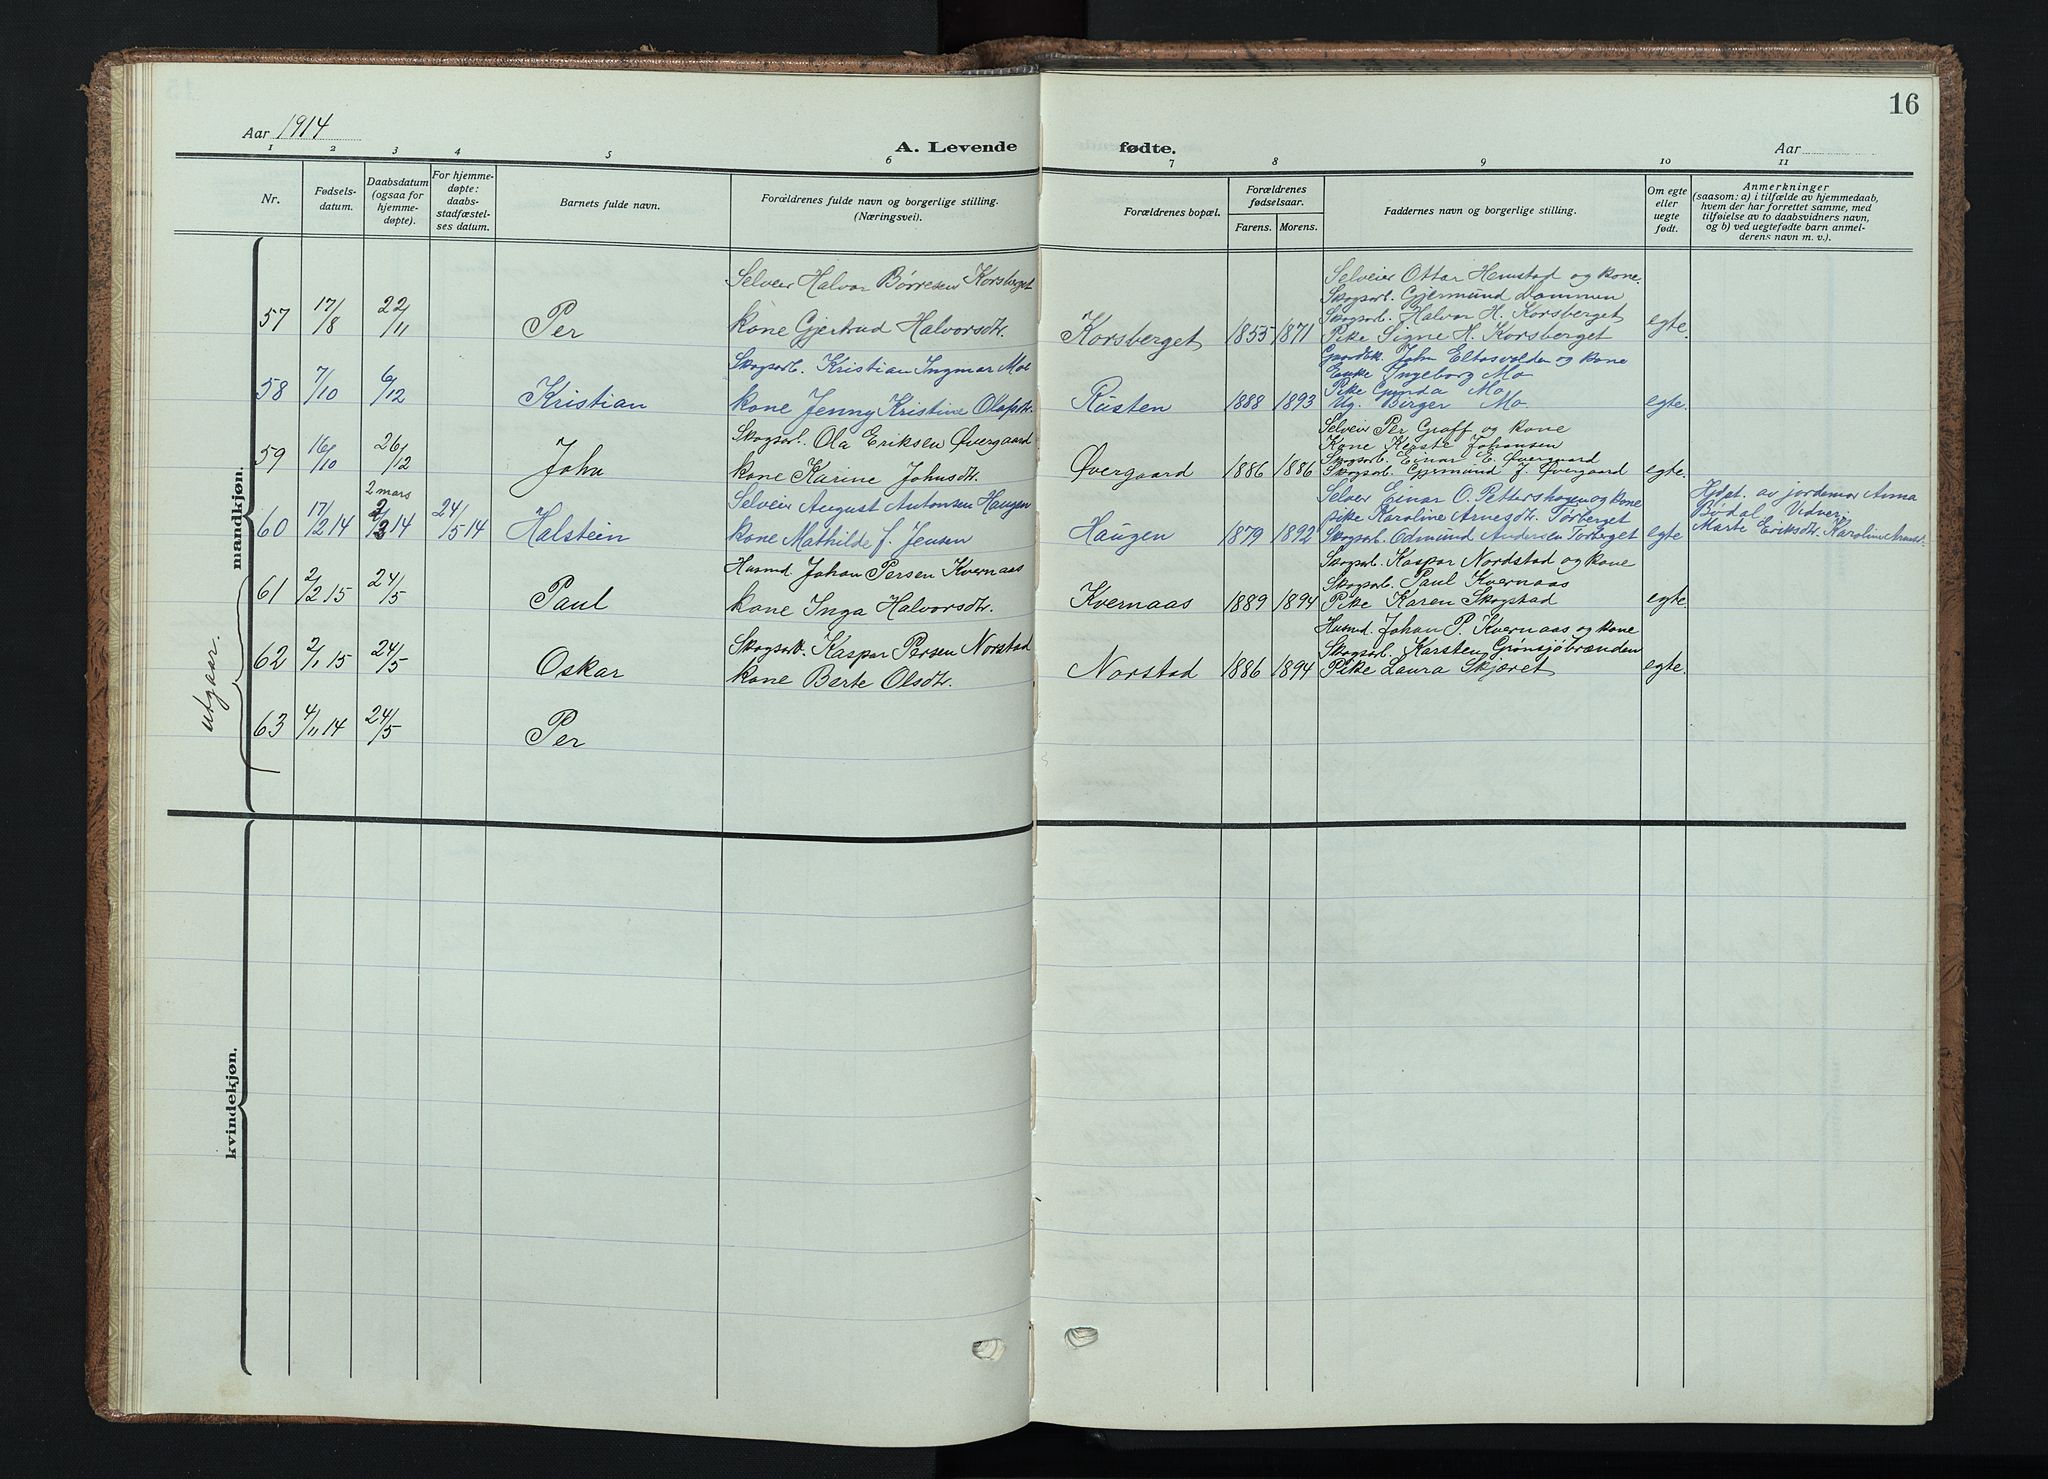 16
Aar 1914
A. Levende fødte.
Aar
1 2 3 4 5 6 7 8 9 10 11
Nr.
Fødsels-
datum.
Daabsdatum
(ogsaa for
hjemme-
døpte).
For hjemme-
døpte:
daabs-
stadfæstel-
ses datum.
Barnets fulde navn.
Forældrenes fulde navn og borgerlige stilling.
(Næringsvei).
Forældrenes bopæl.
Forældrenes
fødselsaar.
Farens. Morens.
Faddernes navn og borgerlige stilling.
Om egte
eller
uegte
født.
Anmerkninger
(saasom: a) i tilfælde av hjemmedaab,
hvem der har forrettet samme, med
tilføielse av to daabsvidners navn,
og b) ved uegtefødte barn anmel-
derens navn m. v.).
mandkjøn.
57 17/8 22/11 Per
Selveier Halvor Børresen Korsberget
kone Gjertrud Halvorsdtr.
Korsberget 1855 1871
Selveier Ottar Hemstad og kone
Skogsarb. Gjermund Lommen
Skogsarb. Halvor H. Korsberget
Pike Signe H. Korsberget
egte.
58 7/10 6/12 Kristian
Skogsarb. Kristian Ingmar Moe
kone Jenny Kristine Olafsdtr.
Rusten 1888 1893
Gaardbr. John Eltasvolden og kone
Enke Ingeborg Mo
Pike Gunda Mo
Ug. Birger Mo
egte.
59 16/10 26/12 John
Skogsarb. Ola Eriksen Øvergaard
kone Karine Johnsdtr.
Øvergaard 1886 1886
Selveier Per Graff og kone
Kone Kerste Johansen
Skogsarb. Einar E. Øvergaard
Skogsarb. Gjermund J. Øvergaard
egte.
60 17/2 14 2 mars 2/3 14 24/5 14 Halstein
Selveier August Antonsen Haugen
kone Mathilde f. Jensen
Haugen 1879 1892
Selveier Einar O. Pettershagen og kone
pike Karoline Arnesdtr. Torberget
Skogsarb. Odmund Andersen Torberget
egte
Hjdøt. av jordemor Anna
Bødal Vidner:
Marte Eriksdtr. Karoline Arnesd.
utgaar.
61 2/2 15 24/5 Paul
Husmd. Johan Persen Kvernaas
kone Inga Halvorsdtr.
Kvernaas 1889 1894
Skogsarb. Kaspar Nordstad og kone
Skogsarb. Paul Kvernaas
Pike Karen Skogstad
egte.
62 2/1 15 24/5 Oskar
Skogsarb. Kaspar Persen Norstad
kone Berte Olsdtr.
Norstad 1886 1894
Husmd. Johan P. Kvernaas og kone
Skogsarb. Karsten Grønsjøbrænden
Pike Laura Skjæret
egte.
63 4/11 14 24/5 Per
kvindekjøn.